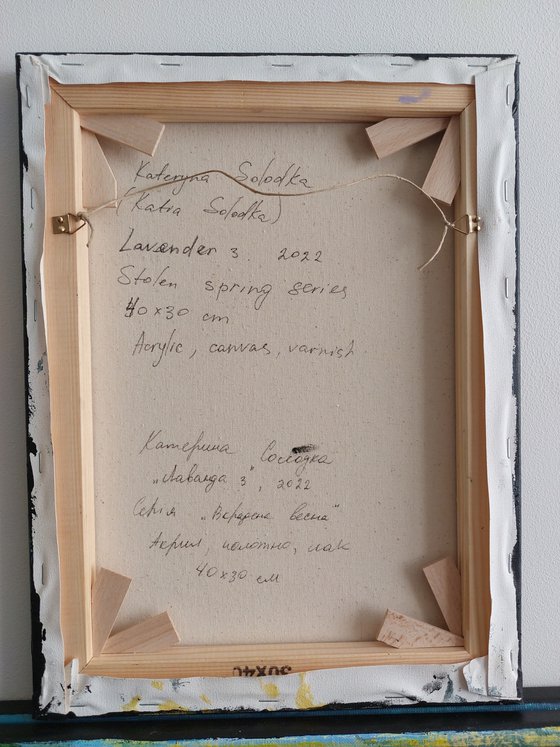 Kateryna Solodka
(Katia Solodka)
Lavander 3. 2022
Stolen spring series
40x30 cm
Acrylic, canvas, varnish
Катерина Солодка
„Лаванда 3", 2022
Серія „Вкрадена весна"
Акрил, полотно, лак
40x30 см
30X40